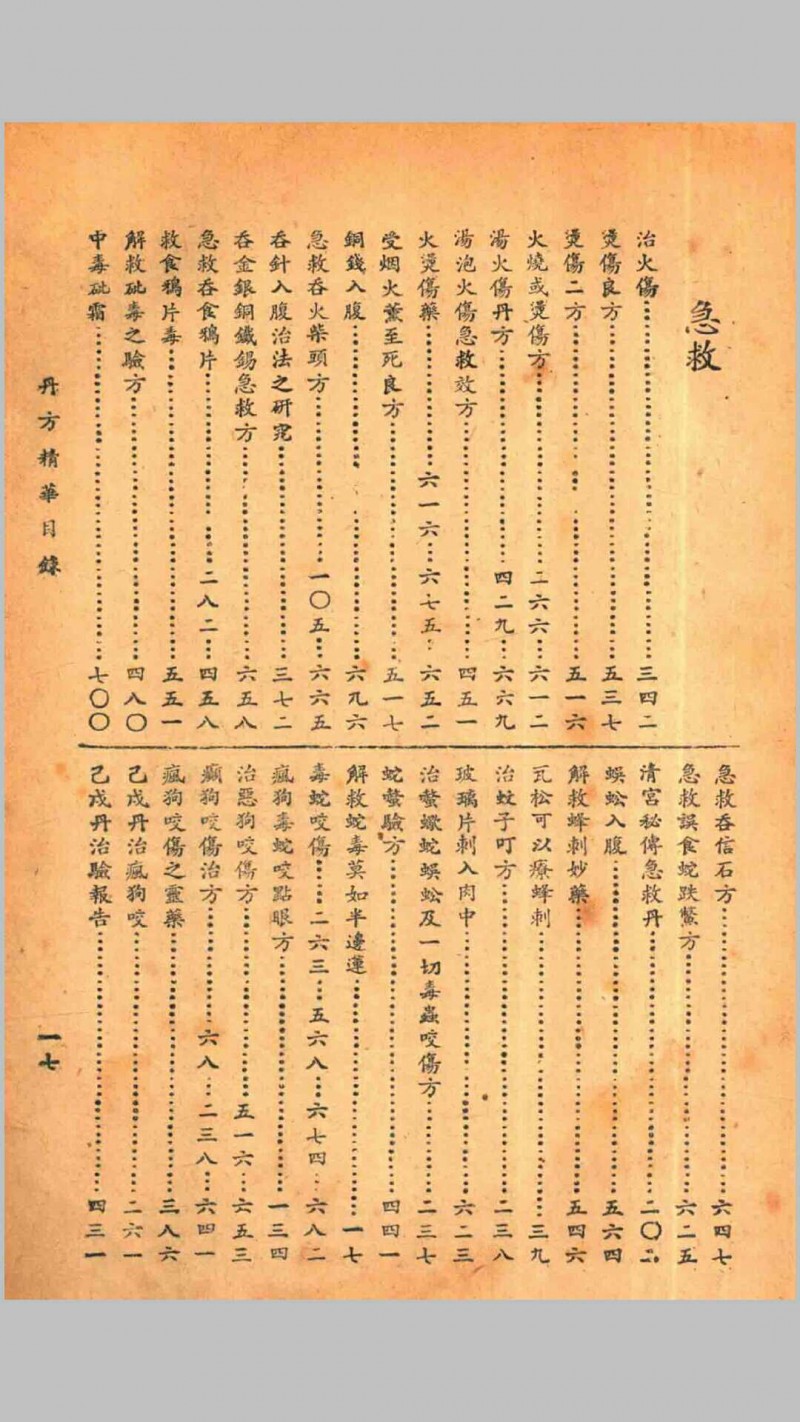 急救
治火傷……三四二
燙傷良方……五三七
燙傷二方……五一六
火燒或燙傷方……二六六…六一二
湯火傷丹方……四二九…六六九
湯泡火傷急救效方……四五一
火燙傷藥……六一六…六七五…六五二
受烟火薰至死良方……五一七
銅錢入腹……六九六
急救吞火柴頭方……一〇五…六六五
吞針入腹治法之研究……三七二
吞金銀銅鐵錫急救方……六五八
急救吞食鴉片……二八二…四五八
救食鴉片毒……五五一
解救砒毒之驗方……四八〇
中毒砒霜……七〇〇
急救吞信石方……六四七
急救誤食蛇跌鱉方……六二五
清宮秘傳急救丹……二〇二
蜈蚣入腹……五六四
解救蜂刺妙藥……五四六
瓦松可以療蜂刺……三九
治蚊子叮方……二三八
玻璃片刺入肉中……六二三
治螫蠍蛇蜈蚣及一切毒蟲咬傷方……二三七
蛇螫驗方……四四一
解救蛇毒莫如半邊蓮……一七
毒蛇咬傷……二六三…五六八…六七四…六八二
瘋狗毒蛇咬點眼方……一三四
治惡狗咬傷方……五一六…六五三
癲狗咬傷治方……六八…二三八…六四一
瘋狗咬傷之靈藥……三八六
己戌丹治瘋狗咬……二六一
己戌丹治驗報告……四三一
丹方精華目錄
一七